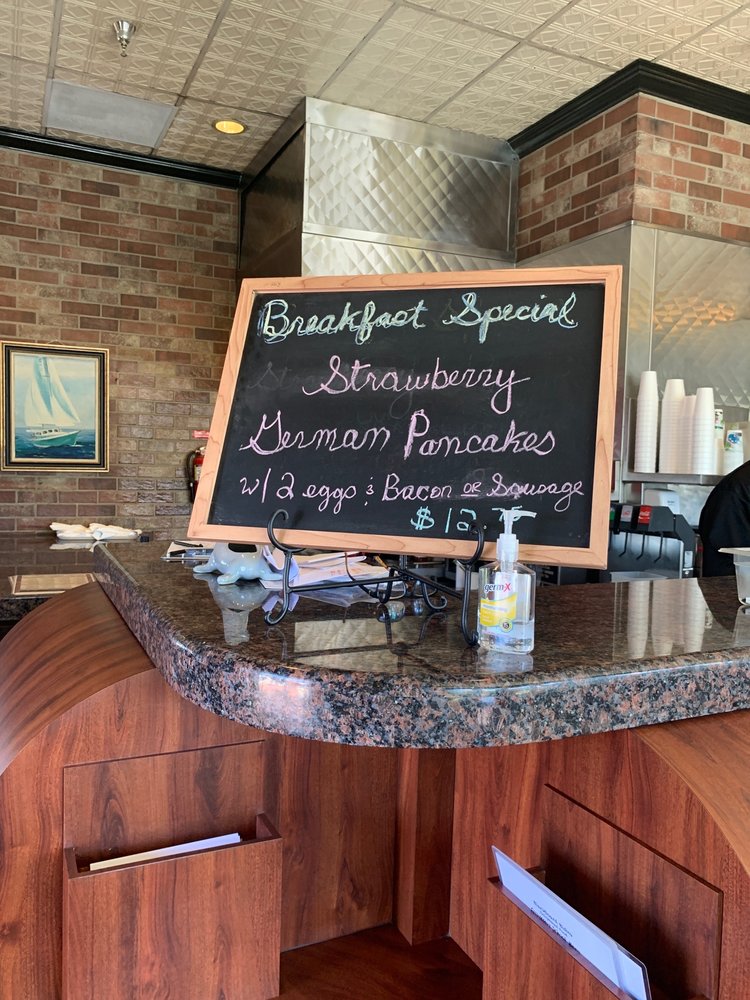 Breakfast Special
Strawberry
German Pancakes
w/2 eggs & Bacon or Sausage
$12
germ-X